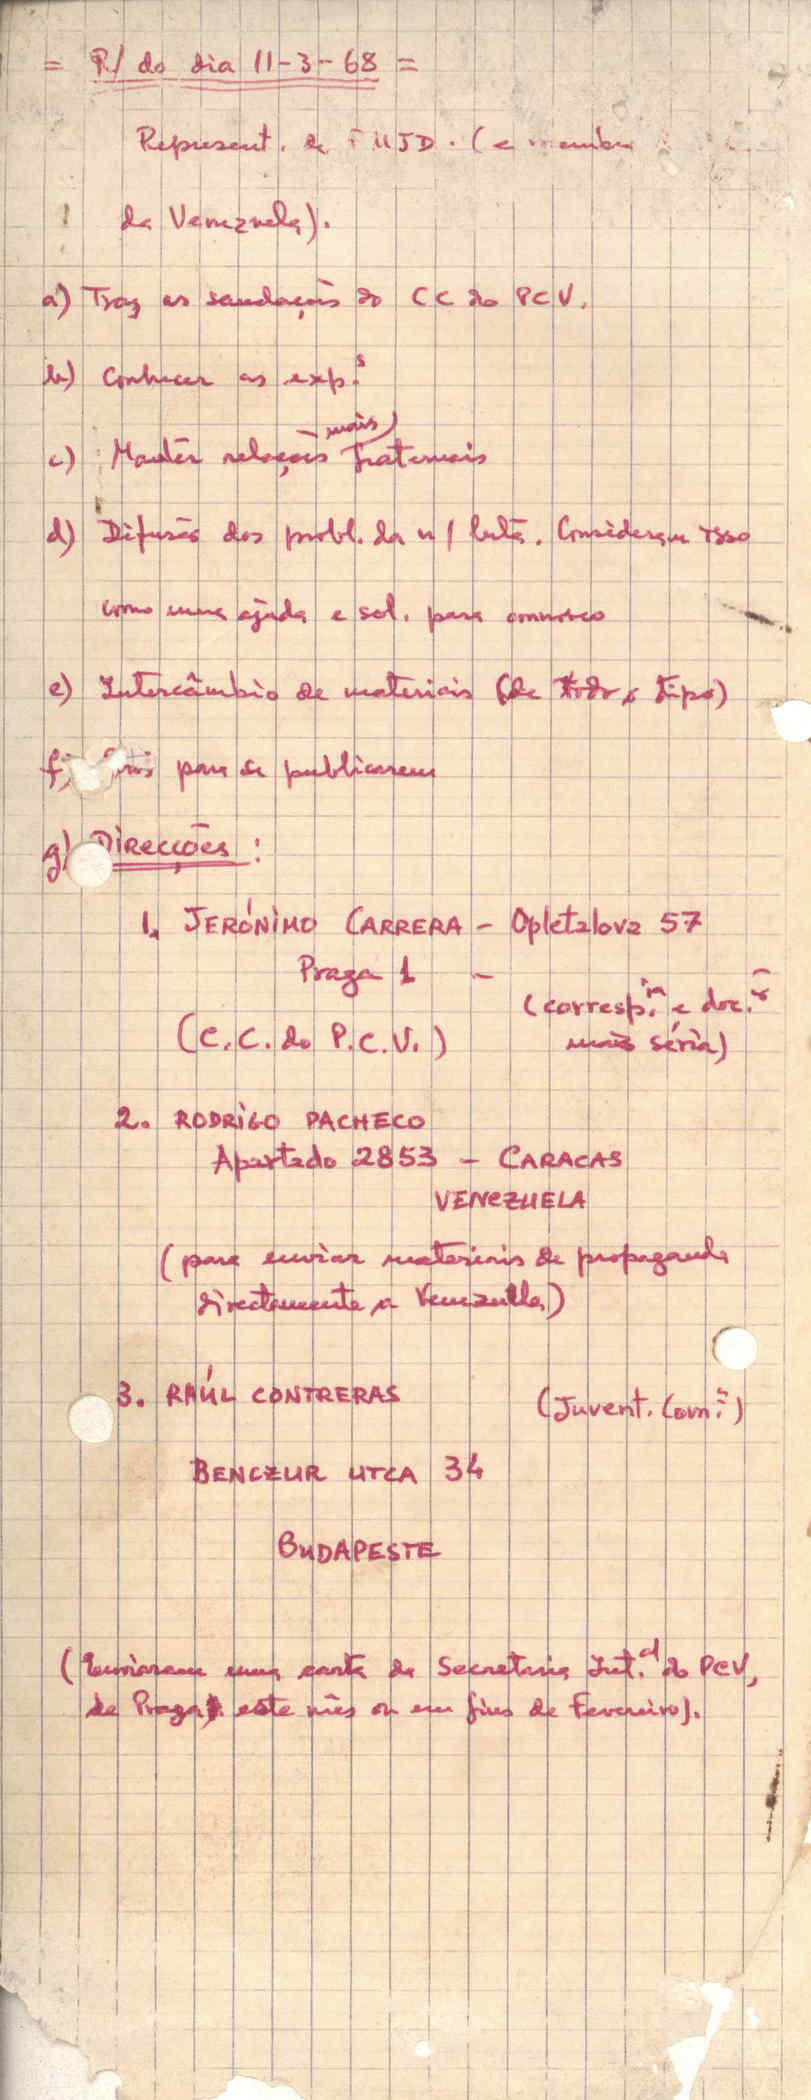 = P./ do dia 11-3-68 =
Represent. da FMJD. (e membro
da Venezuela).
a) Traz as saudações do CC do PCV.
b) Conhecer as exp.s
c) Mantêr relações mais fraternais
d) Difusão dos probl. da n/ luta. Consideram isso
como uma ajuda e sol. para connosco
e) Intercâmbio de materiais (de todo o tipo)
f) para se publicarem
g) Direcções:
1. JERÓNIMO CARRERA - Opletalova 57
Praga 1 -
(corresp.ia e doc.s
(C.C. do P.C.V.) mais séria)
2. RODRIGO PACHECO
Apartado 2853 - CARACAS
VENEZUELA
(para enviar materiais de propaganda
directamente a Venezuela)
3. RAÚL CONTRERAS (Juvent. Com.a)
BENCZUR UTCA 34
BUDAPESTE
(Enviaram uma carta da Secretaria Int.al do PCV,
de Praga, este mês ou em fins de Fevereiro).